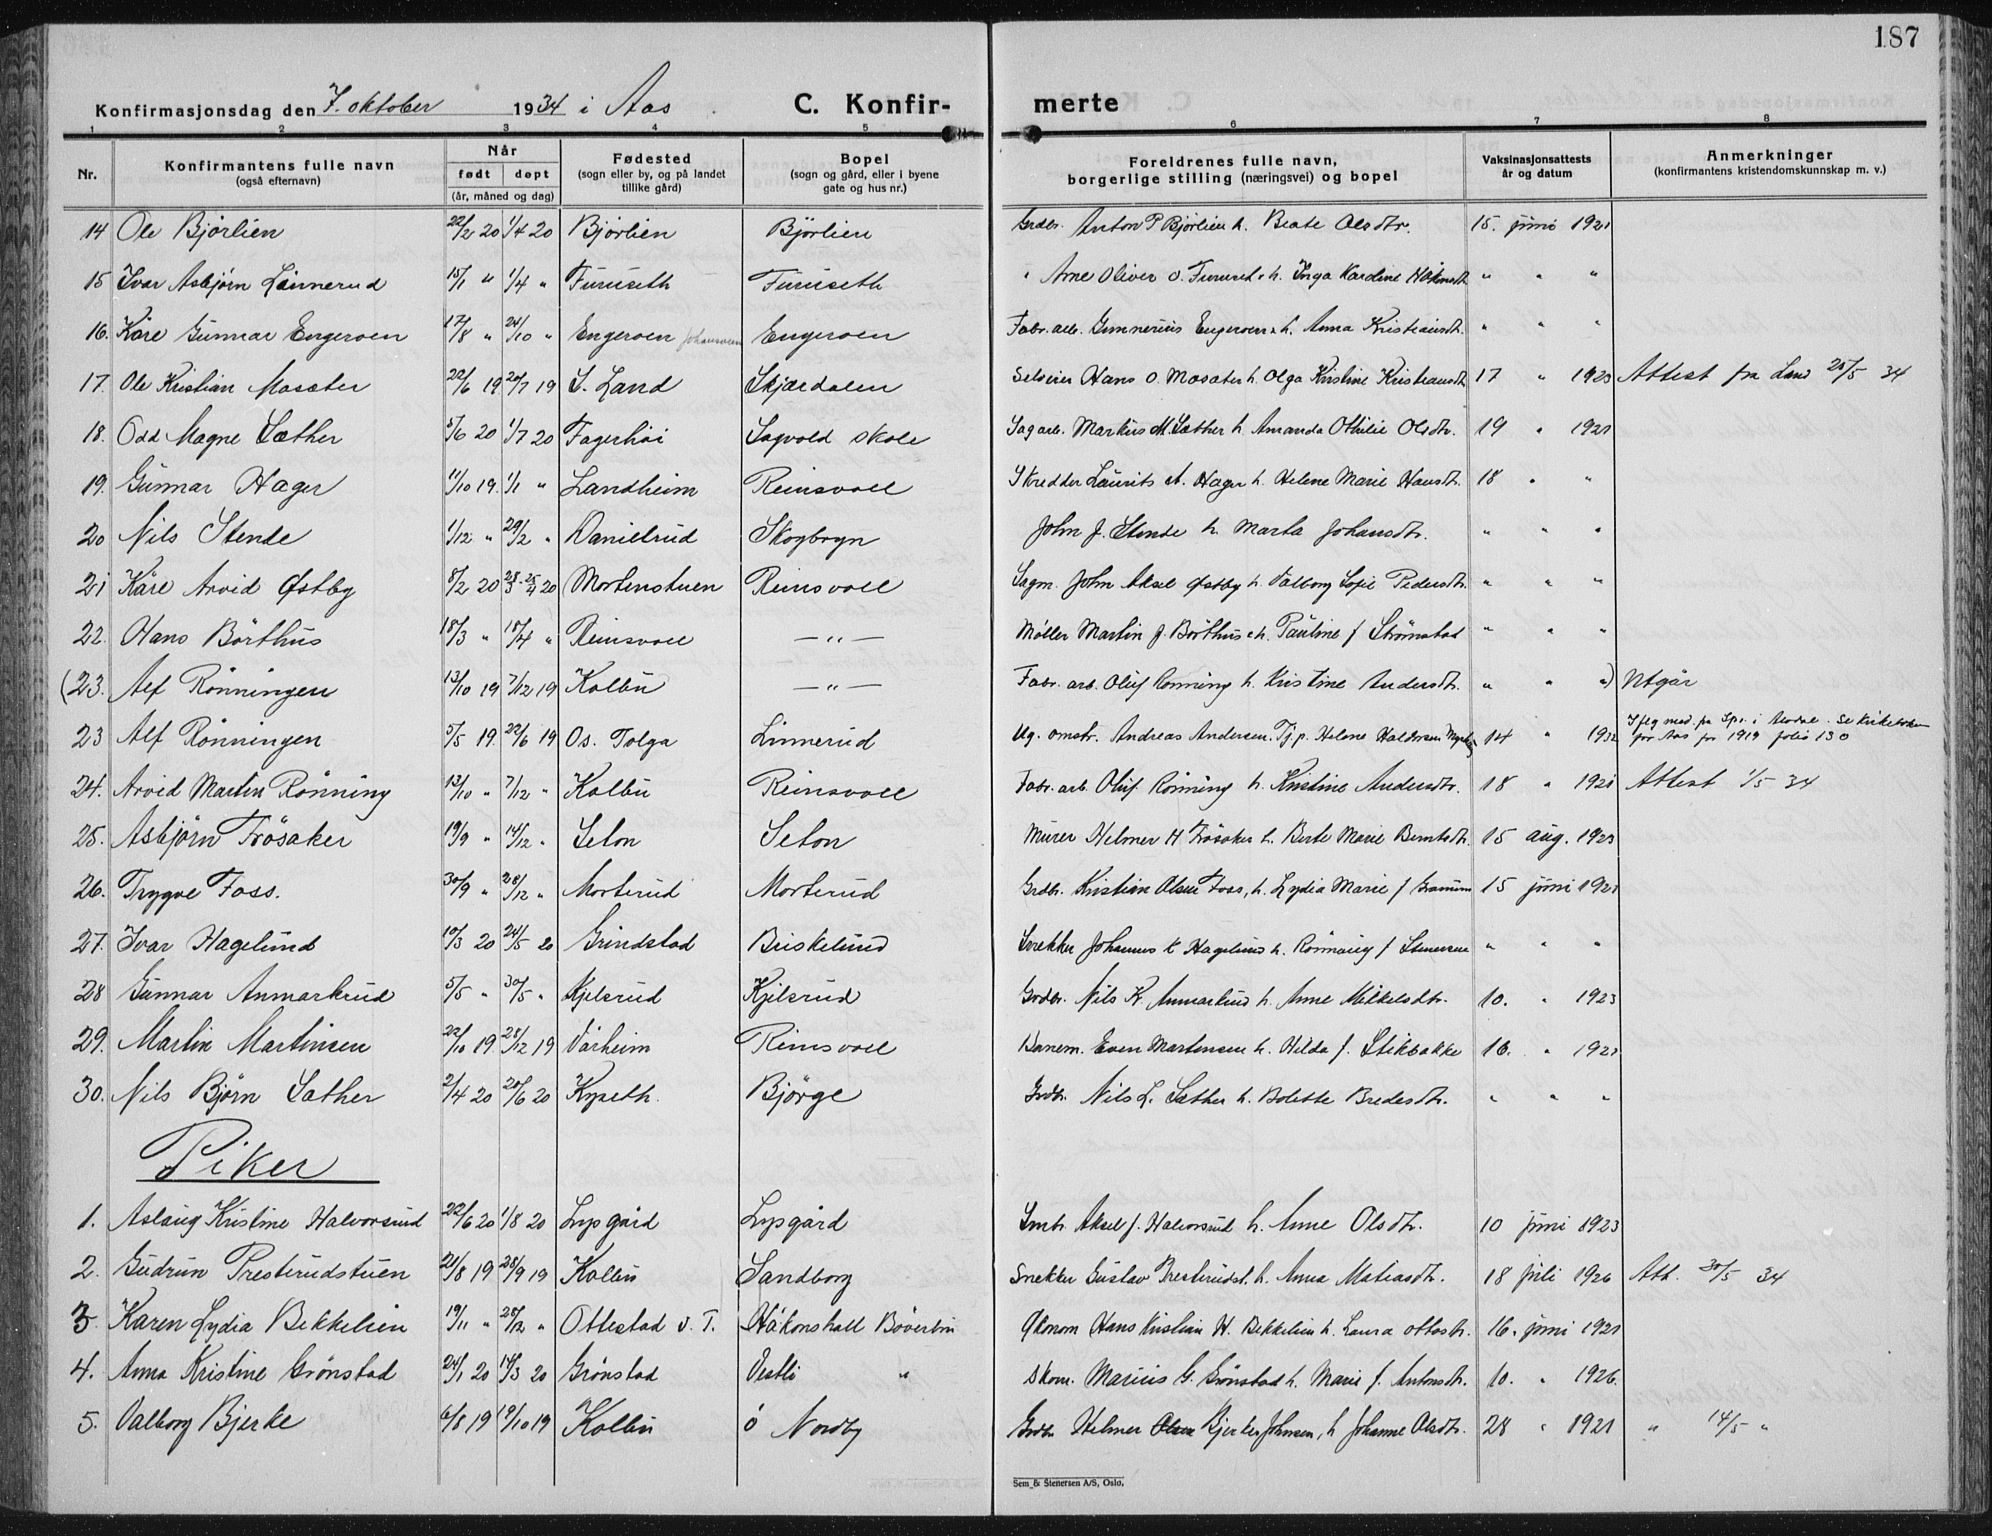 187
Konfirmasjonsdag den 7. oktober 1934 i Aas. C. Konfir- merte
1 2 3 4 5 6 7 8
Nr. Konfirmantens fulle navn (også efternavn) Når født døpt (år, måned og dag) Fødested (sogn eller by, og på landet tillike gård) Bopel (sogn og gård, eller i byene gate og hus nr.) Foreldrenes fulle navn, borgerlige stilling (næringsvei) og bopel Vaksinasjonsattests år og datum Anmerkninger (konfirmantens kristendomskunnskap m. v.)
14 Ole Bjørlien 22/2 20 1/4 20 Bjørlien Bjørlien Grdbr. Anton P Bjørlien h. Beate Olsdtr. 15. juni 1921
15 Ivar Asbjørn Linnerud 15/1 " 1/4 " Furuseth Furuseth " Arne Oliver O. Furuset h. Inga Karoline Håkensdtr " " "
16. Kåre Gunnar Engeroen 17/8 " 24/10 " Engeroen Engeroen Fabr. arb. Gunnerius Engeroen h. Anna Kristiansdtr. " " "
17. Ole Kristian Mosæter 22/6 19 20/7 19 S. Land Skjærdalen Selveier Hans O. Mosæter h. Olga Kristine Kristiansdtr 17 " 1923 Attest fra Land 25/5 34
18. Odd Magne Sæther 5/6 20 1/7 20 Fagerhøi Sagvold skole Sagarb. Markus M. Sæther h. Amanda Othilie Olsdtr. 19 " 1921
19. Gunnar Hager 11/10 19. 1/1 " Landheim Reinsvoll Skredder Laurits A. Hager h. Helene Marie Hansdtr. 18 " "
20 Nils Stende 1/12 " 29/2 " Danielrud Skogbryn John J. Stende h. Marta Johansdtr. " " "
21 Kåre Arvid Østby 5/2 20 28/3-25/4 20 Mortenstuen Reinsvoll Sagm. John Aksel Østby h. Valborg Sofie Pedersdtr. " " "
22. Hans Børthus 18/3 " 18/4 " Reinsvoll — " — Møller Martin J. Børthus h. Pauline f Strømstad " " "
(23. Alf Rønningen 13/10 19 7/12 19 Kolbu — " — Fabr. arb. Oluf Rønning h. Kristine Andersdtr. " " ") Utgår
23 Alf Rønningen 5/5 19. 22/6 19 Os. Tolga Linnerud Ug. omstr. Andreas Andersen. Tj.p. Helene Haldorsen 14 " 1932 Iflg med. fra Spr. i Se Kirkeboken for Aas for 1919 folio 130
24. Arvid Martin Rønning 13/10 " 7/12 " Kolbu Reinsvoll Fabr. arb. Oluf Rønning h. Kristine Andersdtr. 18 " 1921 Attest 1/5 34
25. Asbjørn Frøsaker 19/9 " 14/12 " Seton Seton Murer Helmer H Frøsaker h. Berte Marie Berntsdtr. 15 aug. 1923
26. Trygve Foss. 30/9 " 28/12 " Morterud Morterud Grdbr. Kristian Olsen Foss, h. Lydia Marie f Granum 15 juni 1921
27. Ivar Hagelund 10/3 20 24/5 20 Grindstad Briskelund Snekker Johannes K Hagelund h. Rønnaug f Stenersen " " "
28 Gunnar Anmarkrud 5/5 " 30/5 " Kjelsrud Kjelsrud Grdbr. Nils K. Anmarkrud h. Anne Mikkelsdtr. 10. " 1923
29. Martin Martinsen 22/10 19. 28/12 19 Vårheim Reinsvoll Banem. Even Martinsen h. Hilda f. Stikbakke 16. " 1921
30. Nils Bjørn Sæther 2/4 20 20/6 20 Kyseth. Bjørge Grdbr. Nils L. Sæther h. Bolette Bredesdtr. " " "
Piker
1. Aslaug Kristine Halvorsrud 22/6 20 1/8 20 Lysgård Lysgård Smbr. Aksel J. Halvorsrud h. Anne Olsdtr. 10 juni 1923
2. Gudrun Presterudstuen 21/8 19 28/9 19 Kolbu Sandborg Snekker Gustav Presterudst. h. Anna Matiasdtr. 18 juli 1926 Att. 30/5 34
3 Karen Lydia Bekkelien 19/11 " 28/12 " Ottestad v. T. Håkonshall Bøverbru Økonom Hans Kristian H. Bekkelien h. Laura Ottosdtr. 16. juni 1921
4. Anna Kristine Grønstad 24/1 20 14/3 20 Grønstad Vestli " Skom. Marius G. Grønstad h. Marie f. Antonsdtr. 10. " 1926.
5. Valborg Bjerke 6/8 19 19/10 19 Kolbu ö Nordby Grdbr Helmer Bjerke Johnsen, h Johanne Olsdtr. 28 " 1921 " 14/5 "
Sem & Stenersen A/S, Oslo.